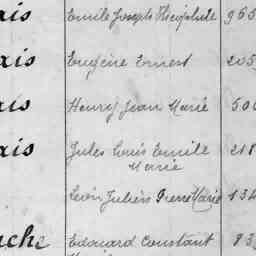 ais Emile Joseph Théophile 965
ais Eugène Ernest 205
ais Henry Jean Marie 500
ais Jules Louis Emile 218
Marie
Léon Juliën Pierre Marie 134
uche Edouard Constant 83